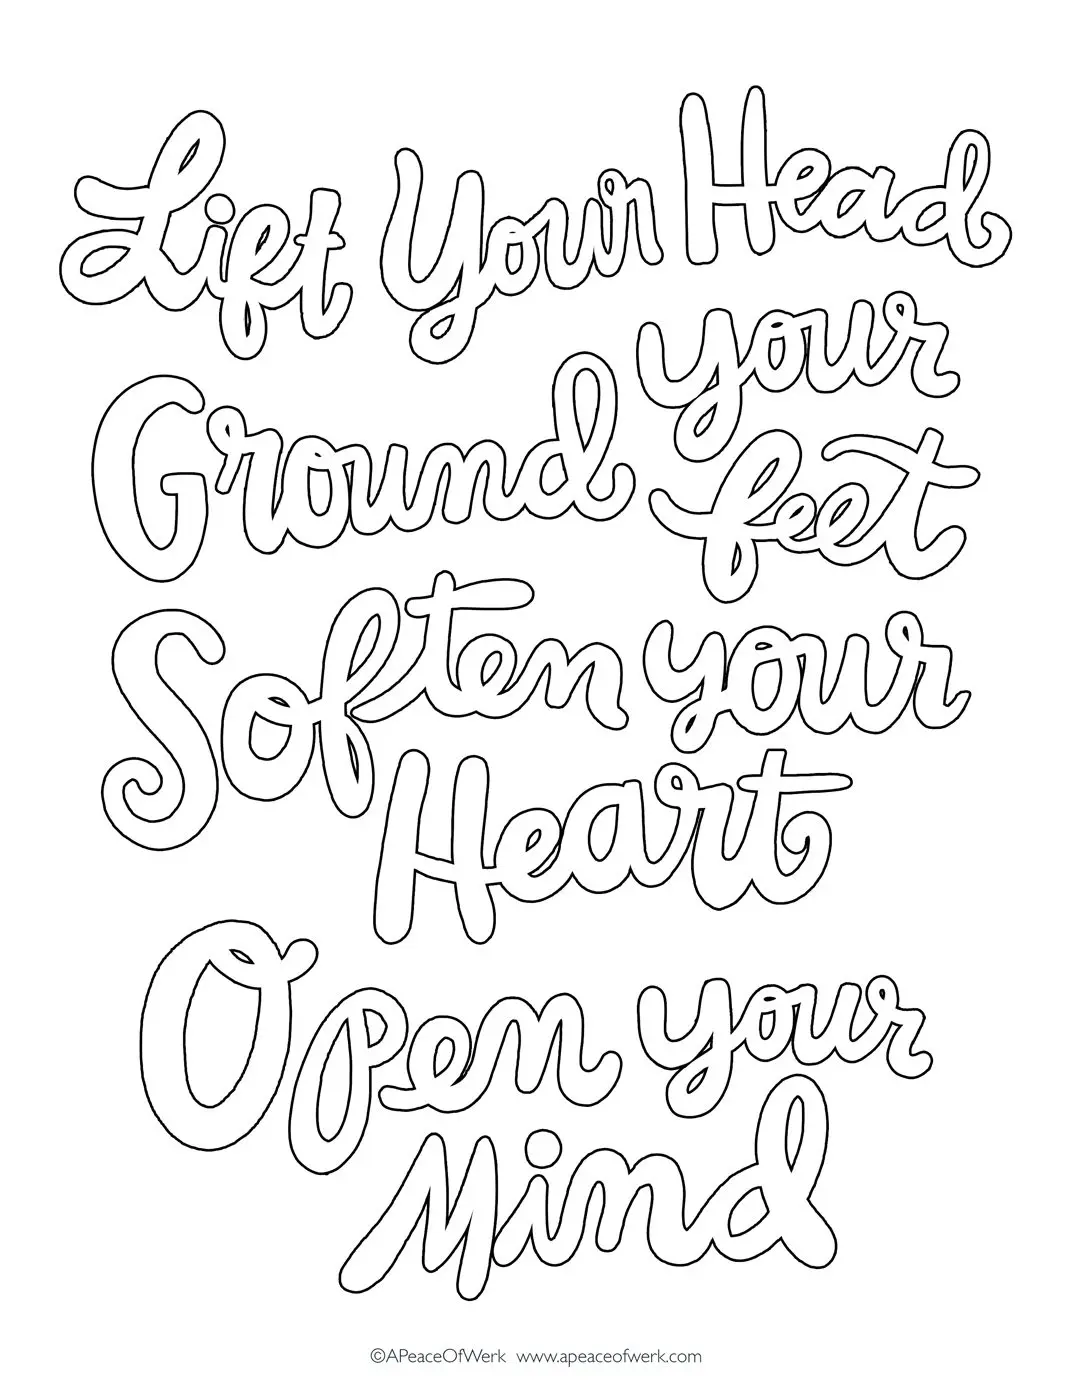 Lift Your Head
Ground your
feet
Soften your
Heart
Open your
Mind
©APeaceOfWerk www.apeaceofwerk.com